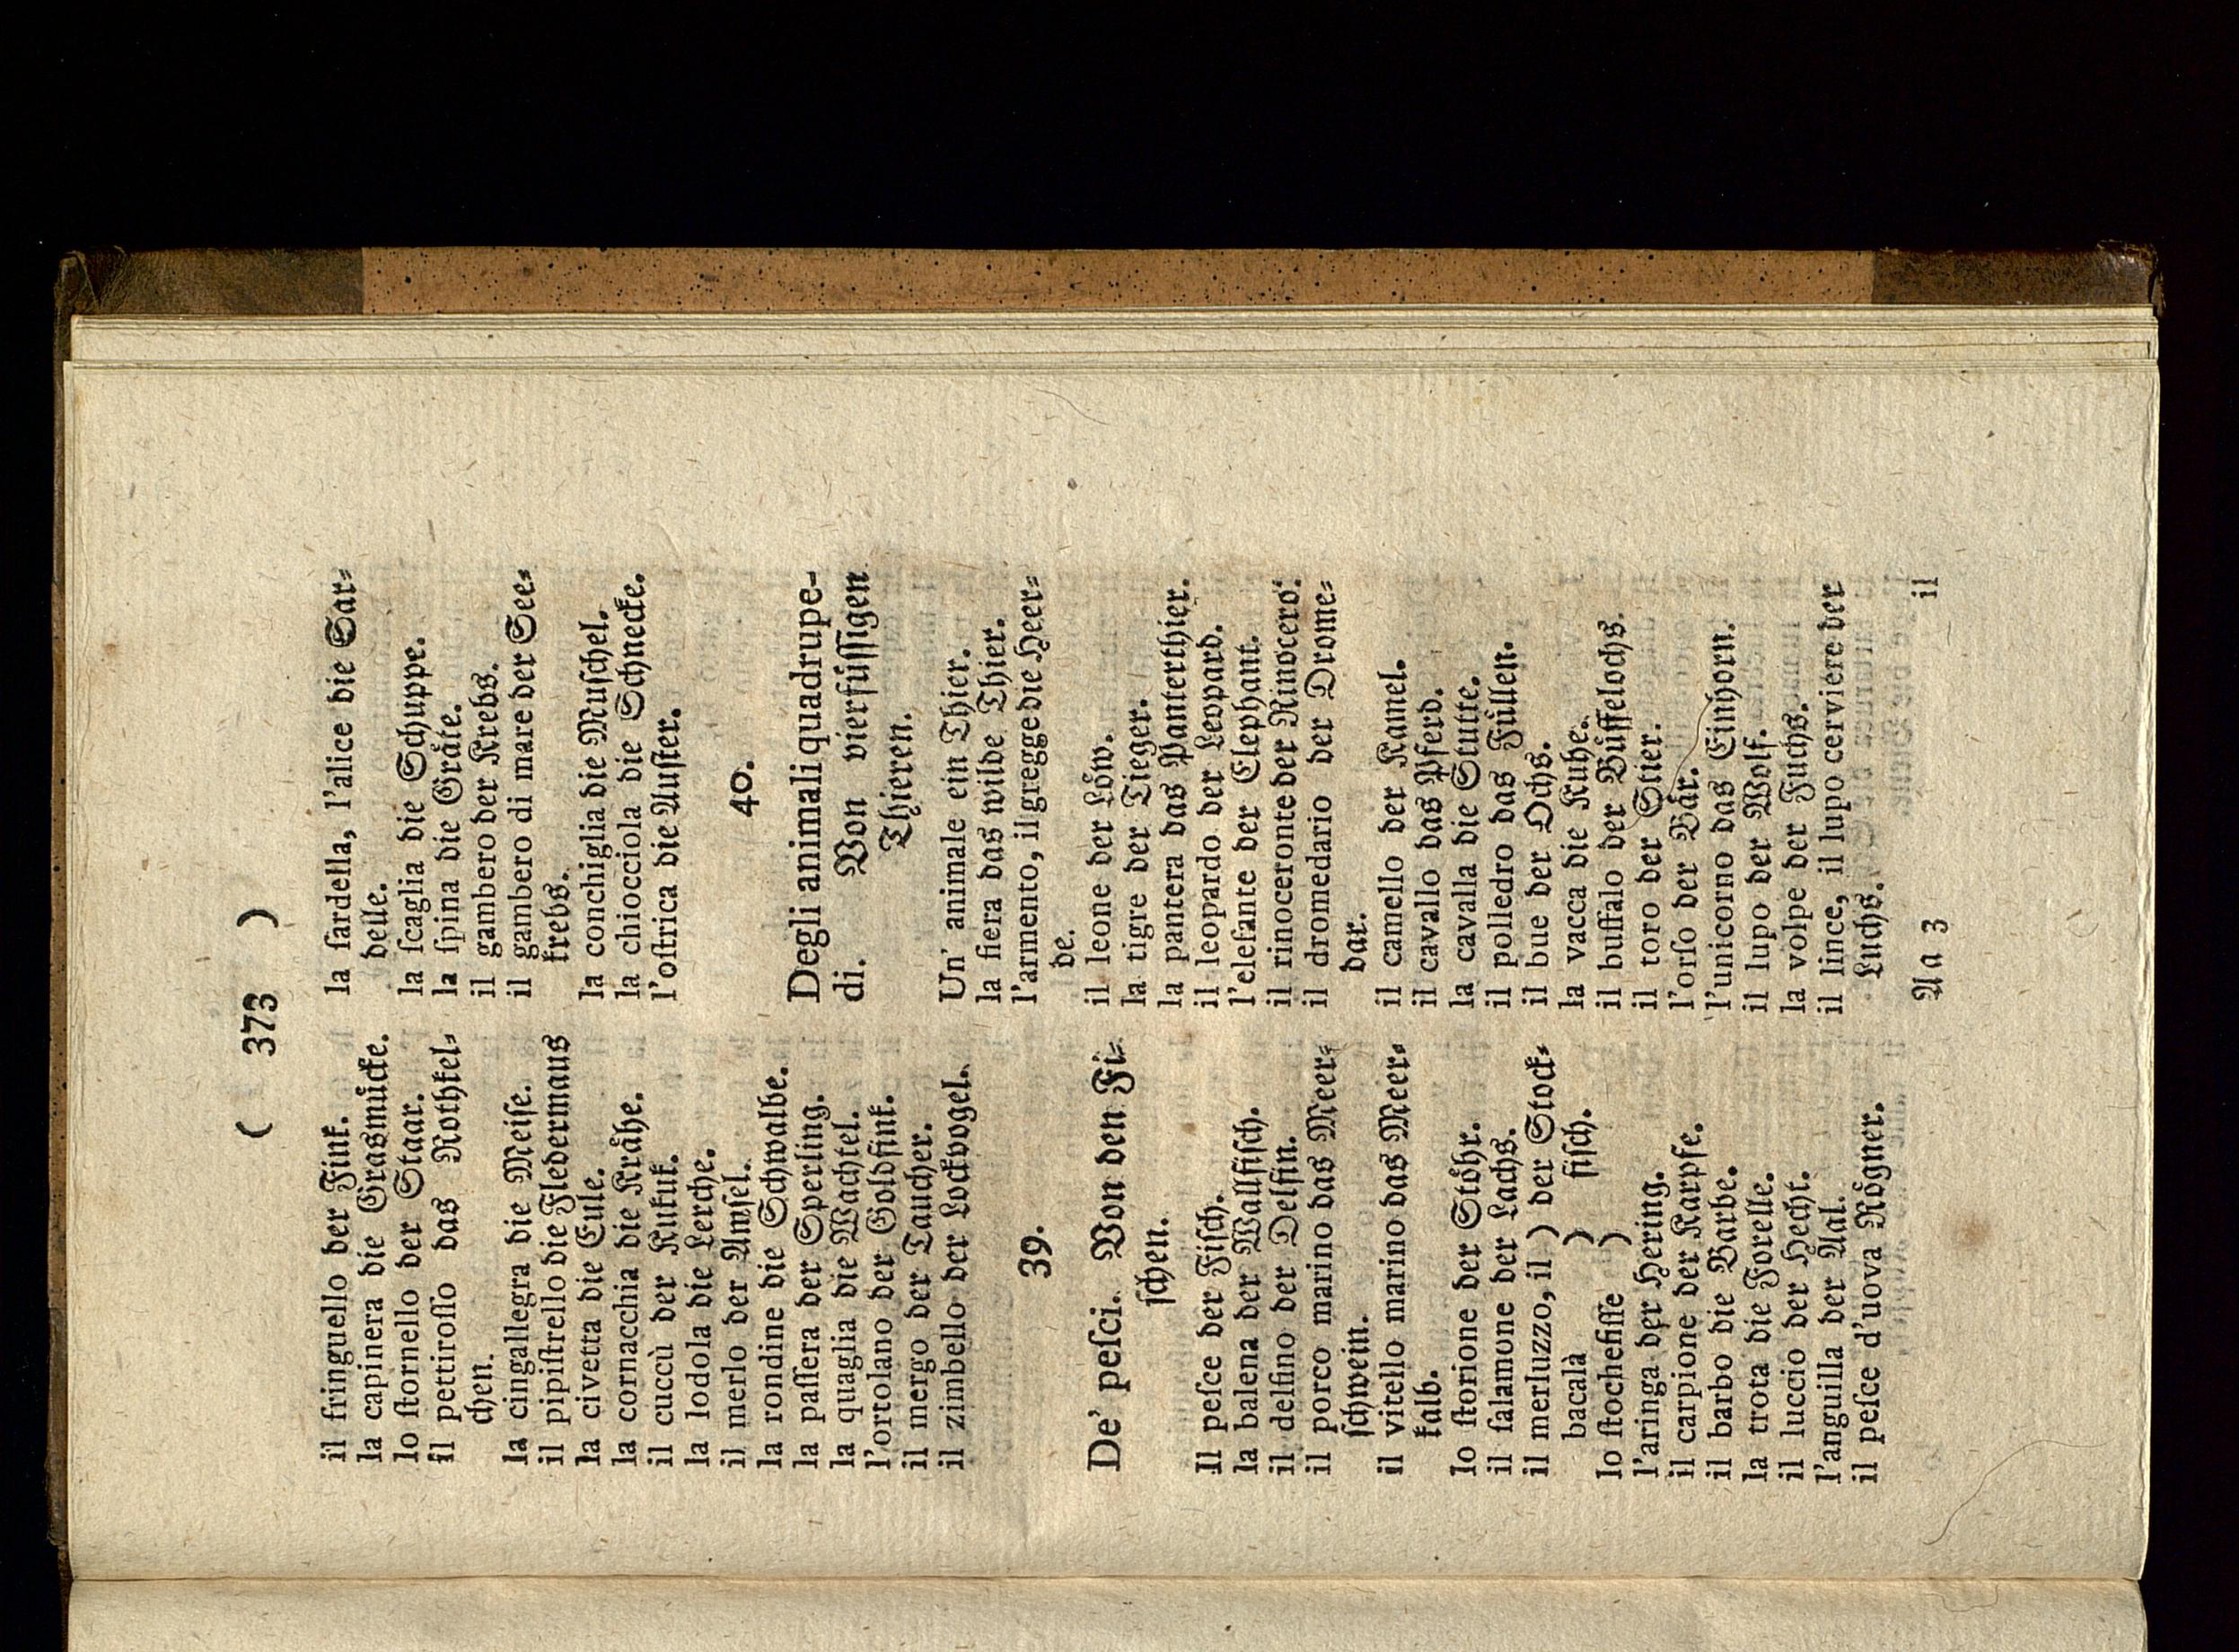 ( 373 )
il fringuello der Fink.
la capinera die Grasmůcke.
lo ſtornello der Staar.
il pettiroſſo das Rothkel⸗
chen.
la cingallegra die Meiſe.
il pipiſtrello die Fledermaus
la civetta die Eule.
la cornacchia die Kråhe.
il cuccù der Kukuk.
la lodola die Lerche.
il merlo der Amſel.
la rondine die Schwalbe.
la paſſera der Sperling.
la quaglia die Wachtel.
l'ortolano der Goldfink.
il mergo der Taucher.
il zimbello der Lockvogel.
39.
De' peſci. Von den Fi⸗
ſchen.
Il peſce der Fiſch.
la balena der Wallfiſch.
il delfino der Delfin.
il porco marino das Meer⸗
ſchwein.
il vitello marino das Meer⸗
kalb.
lo ſtorione der Stöhr.
il ſalamone der Lachs.
il merluzzo, il ) der Stock⸗
bacalà ) fiſch.
lo ſtochefiſſe )
l'aringa der Hering.
il carpione der Karpfe.
il barbo die Barbe.
la trota die Forelle.
il luccio der Hecht.
l'anguilla der Aal.
il peſce d'uova Rögner.
la ſardella, l'alice die Sar⸗
delle.
la ſcaglia die Schuppe.
la ſpina die Gråte.
il gambero der Krebs.
il gambero di mare der See⸗
krebs.
la conchiglia die Muſchel.
la chiocciola die Schnecke.
l'oſtrica die Auſter.
40.
Degli animali quadrupe-
di. Von vierfůſſigen
Thieren.
Un' animale ein Thier.
la fiera das wilde Thier.
l'armento, il gregge die Heer⸗
de.
il leone der Löw.
la tigre der Tieger.
la pantera das Panterthier.
il leopardo der Leopard.
l'elefante der Elephant.
il rinoceronte der Rinocero.
il dromedario der Drome⸗
dar.
il camello der Kamel.
il cavallo das Pferd.
la cavalla die Stutte.
il polledro das Fůllen.
il bue der Ochs.
la vacca die Kuhe.
il buffalo der Bůffelochs.
il toro der Stier.
l'orſo der Bår.
l'unicorno das Einhorn.
il lupo der Wolf.
la volpe der Fuchs.
il lince, il lupo cerviere der
Luchs.
A a 3 il